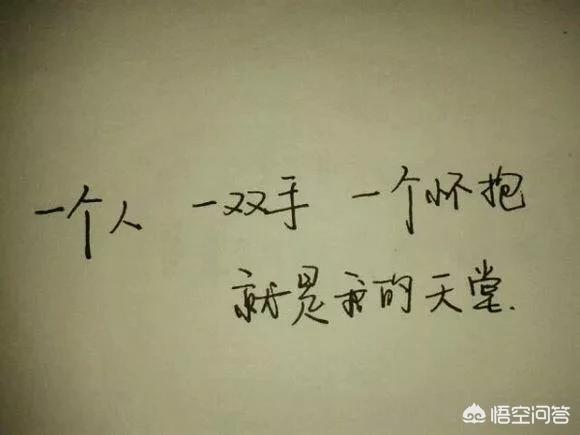 一个人 一双手 一个怀抱
就是我的天堂.
悟空问答